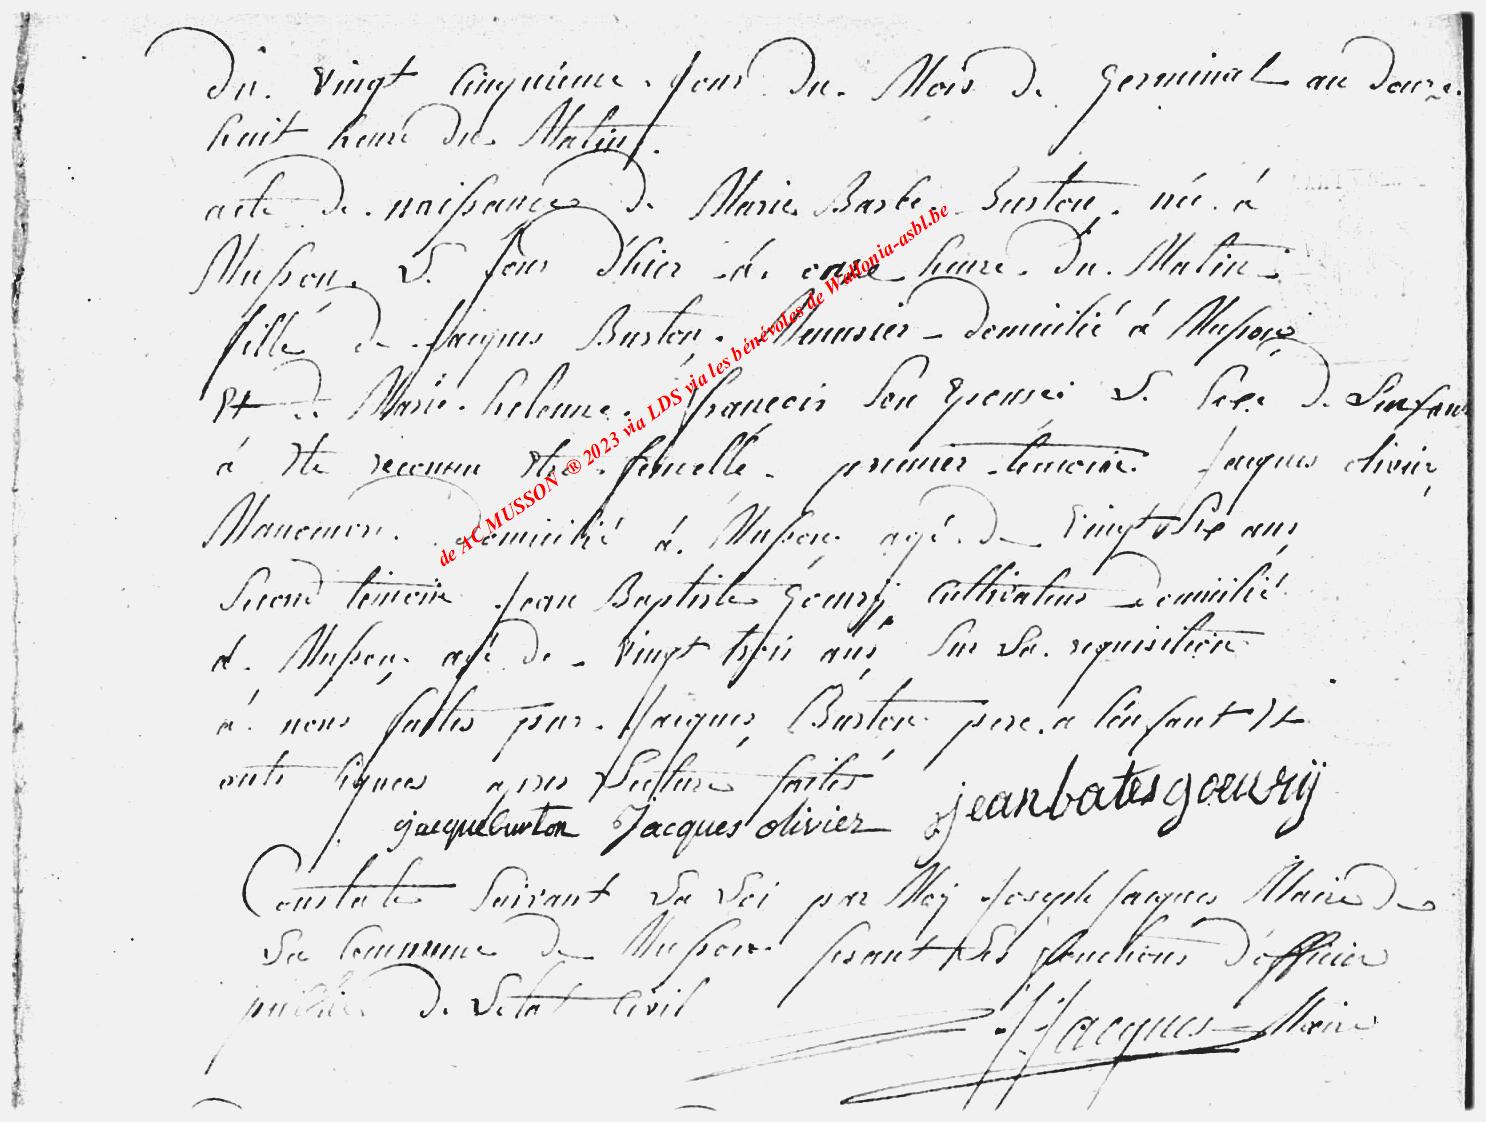 Du vingt cinquieme jour du Mois de Germinal an douze
huit heure du Matin
acte de naissance de Marie Barbe Burton née à
Musson le jour d'hier à onze heure du Matin
fille de Jacques Burton Meunier domicilié à Musson
Et de Marie helenne françois Son Epouse le Sexe de Lenfant
à Ete reconnu Etre femelle premier temoin Jacques olivier
domicilié à Musson agé de Vingt Six ans
Second temoin Jean Baptiste Gœury Cultivateur Domicilié
à Musson agé de Vingt trois ans Sur La requisition
à nous faites par Jacques Burton pere a lénfant Et
onts signees apres Lecture faites
jacque burton Jacques olivier jean batis goeurij
Constaté Suivant La Loi par Moy Joseph Jacques Maire De
La Commune De Musson fesant Les fonctions D'officier
public De Létat Civil
JJacques Maire
de AC MUSSON ® 2023 via LDS via les bénévoles de Wallonia-asbl.be